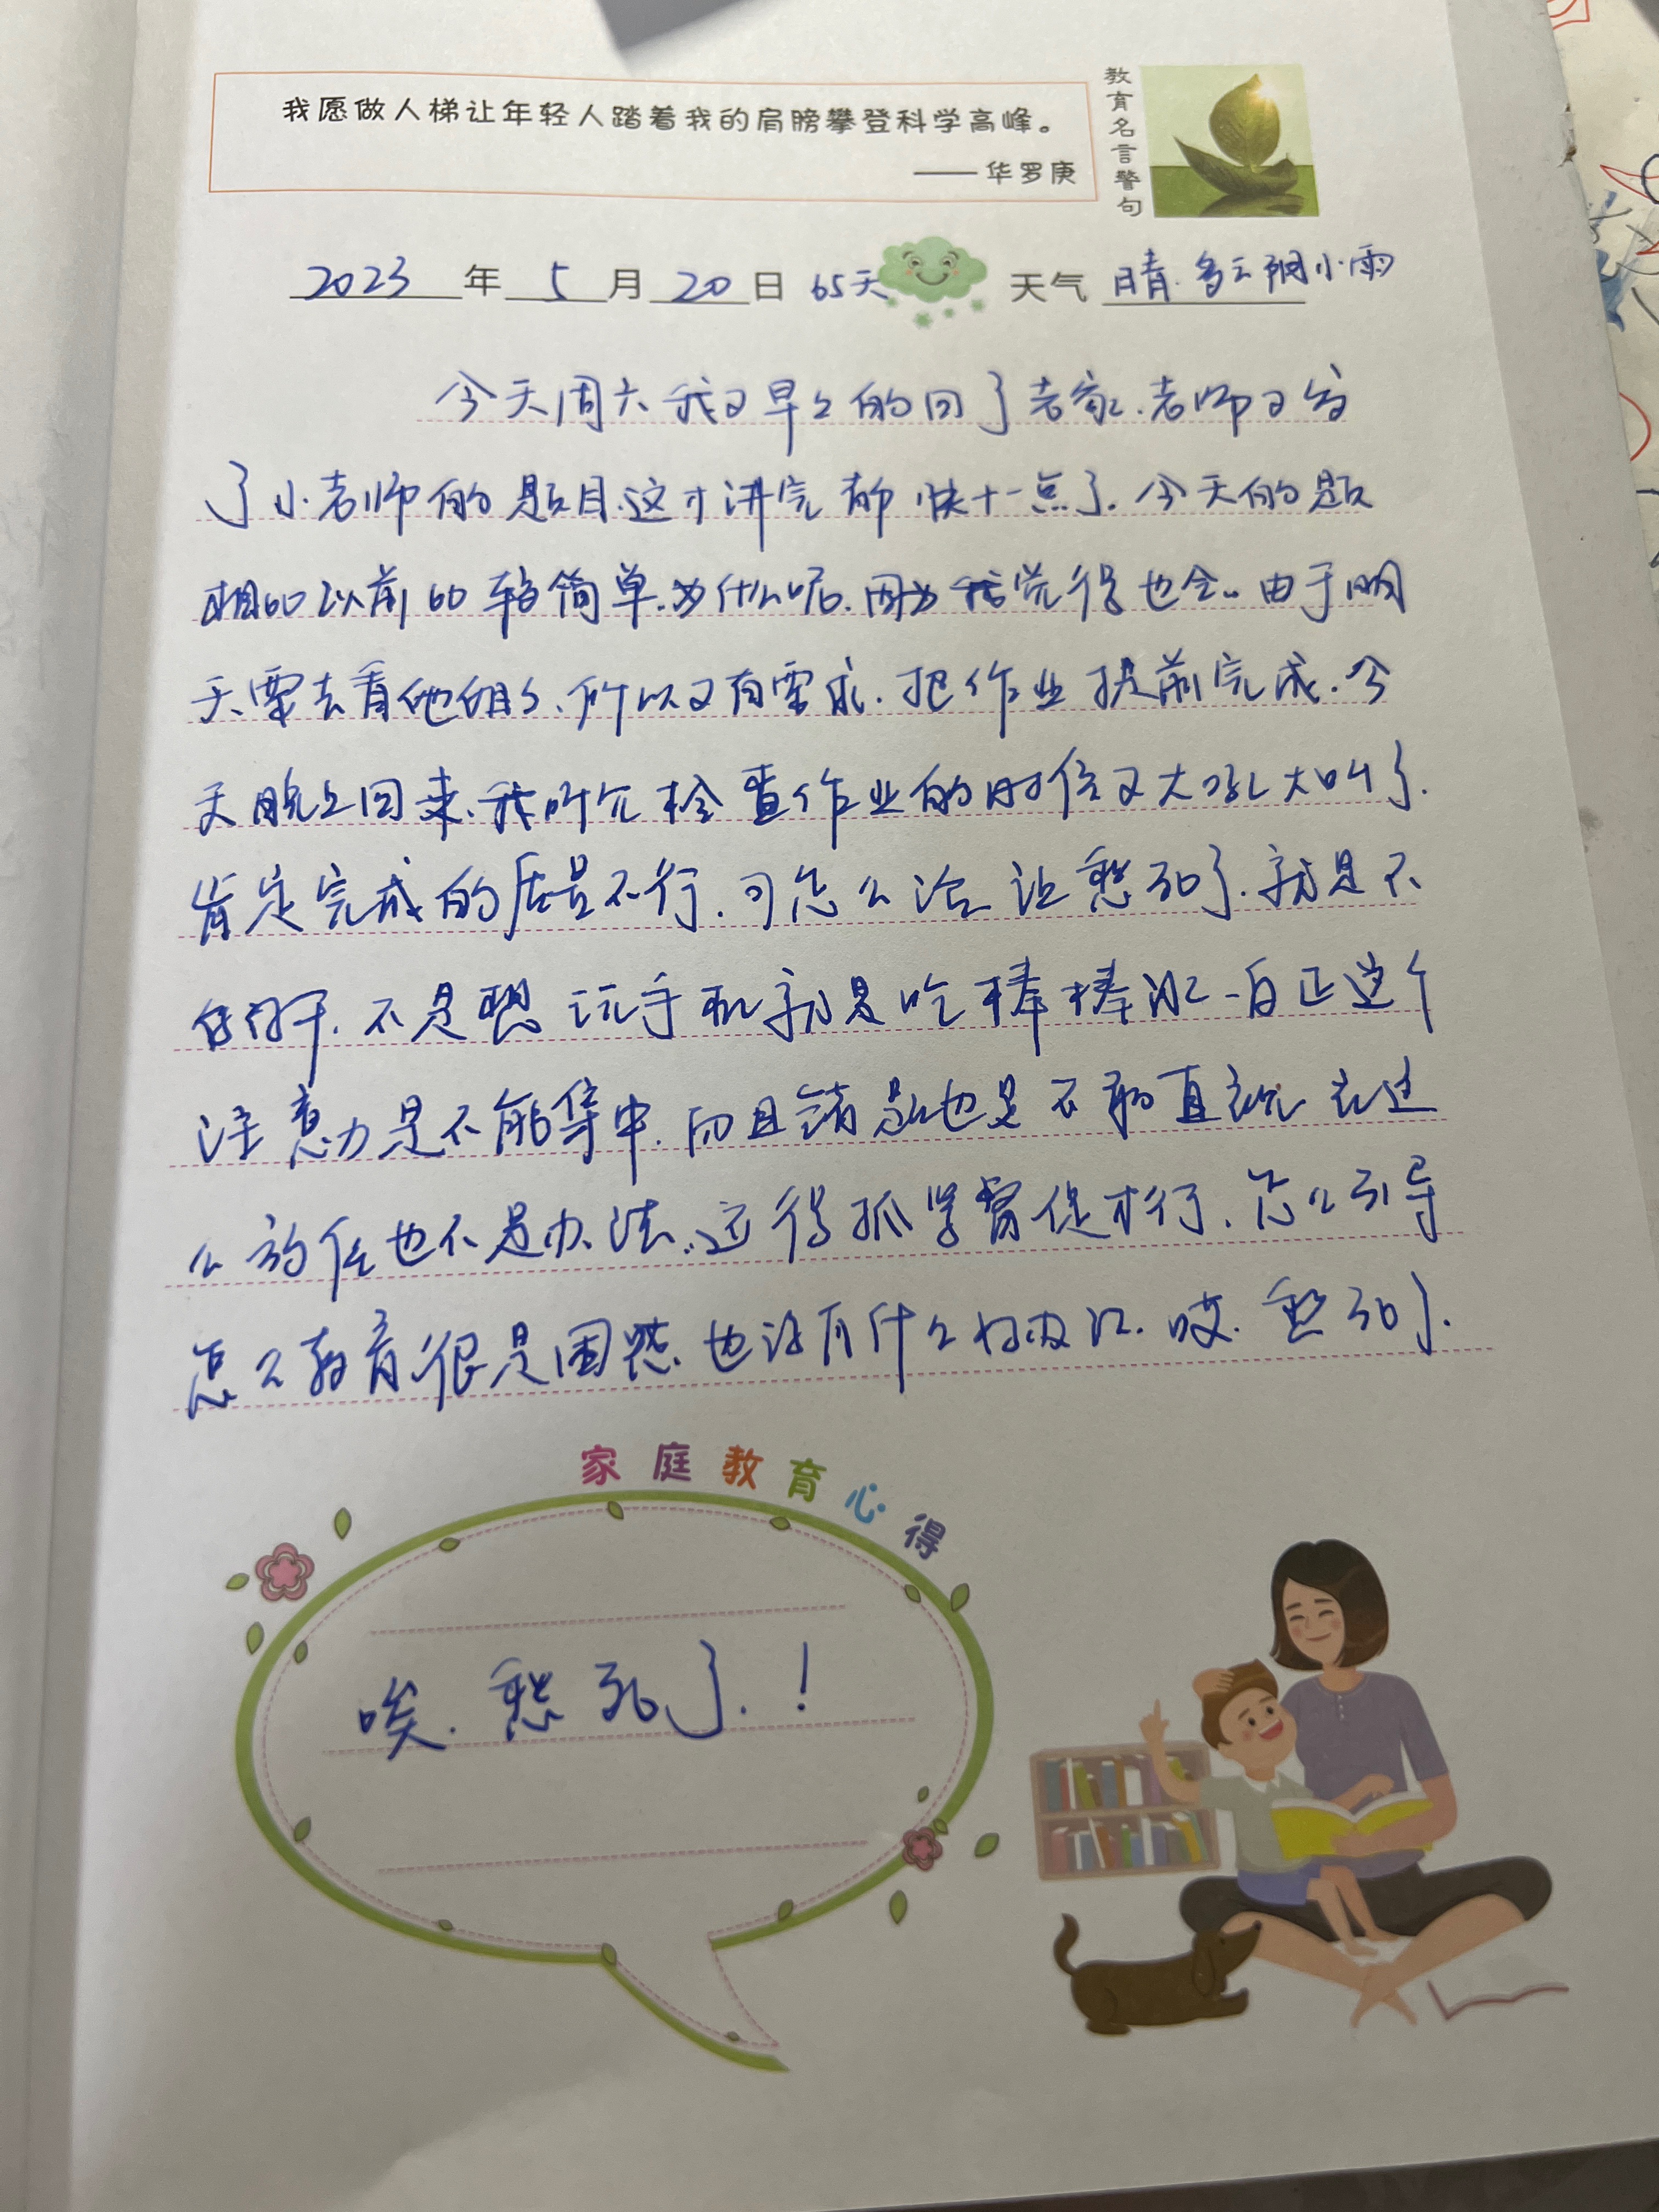 我愿做人梯让年轻人踏着我的肩膀攀登科学高峰。
——华罗庚
教育名言警句
2023年5月20日 65天 天气 晴.多云阴小雨
今天周六我又早早的回了老家.老师又发
了小老师的题目.这才讲完都快十一点了.今天的题
相比以前的较简单.为什么呢.因为我觉得也会..由于明
天要去看他姐,所以又有要求.把作业提前完成.今
天晚上回来.我叫他检查作业的时候又大吼大叫了.
肯定完成的质量不行.可怎么治 让愁死了.就是不
自律.不是想玩手机就是吃棒棒冰 反正这个
注意力是不能集中.而且错题也是不敢直视 在这
么放任也不是办法..还得抓学督促才行.怎么引导
怎么教育.很是困惑.也没有什么好办法.哎.愁死了.
家庭教育心得
唉.愁死了.!